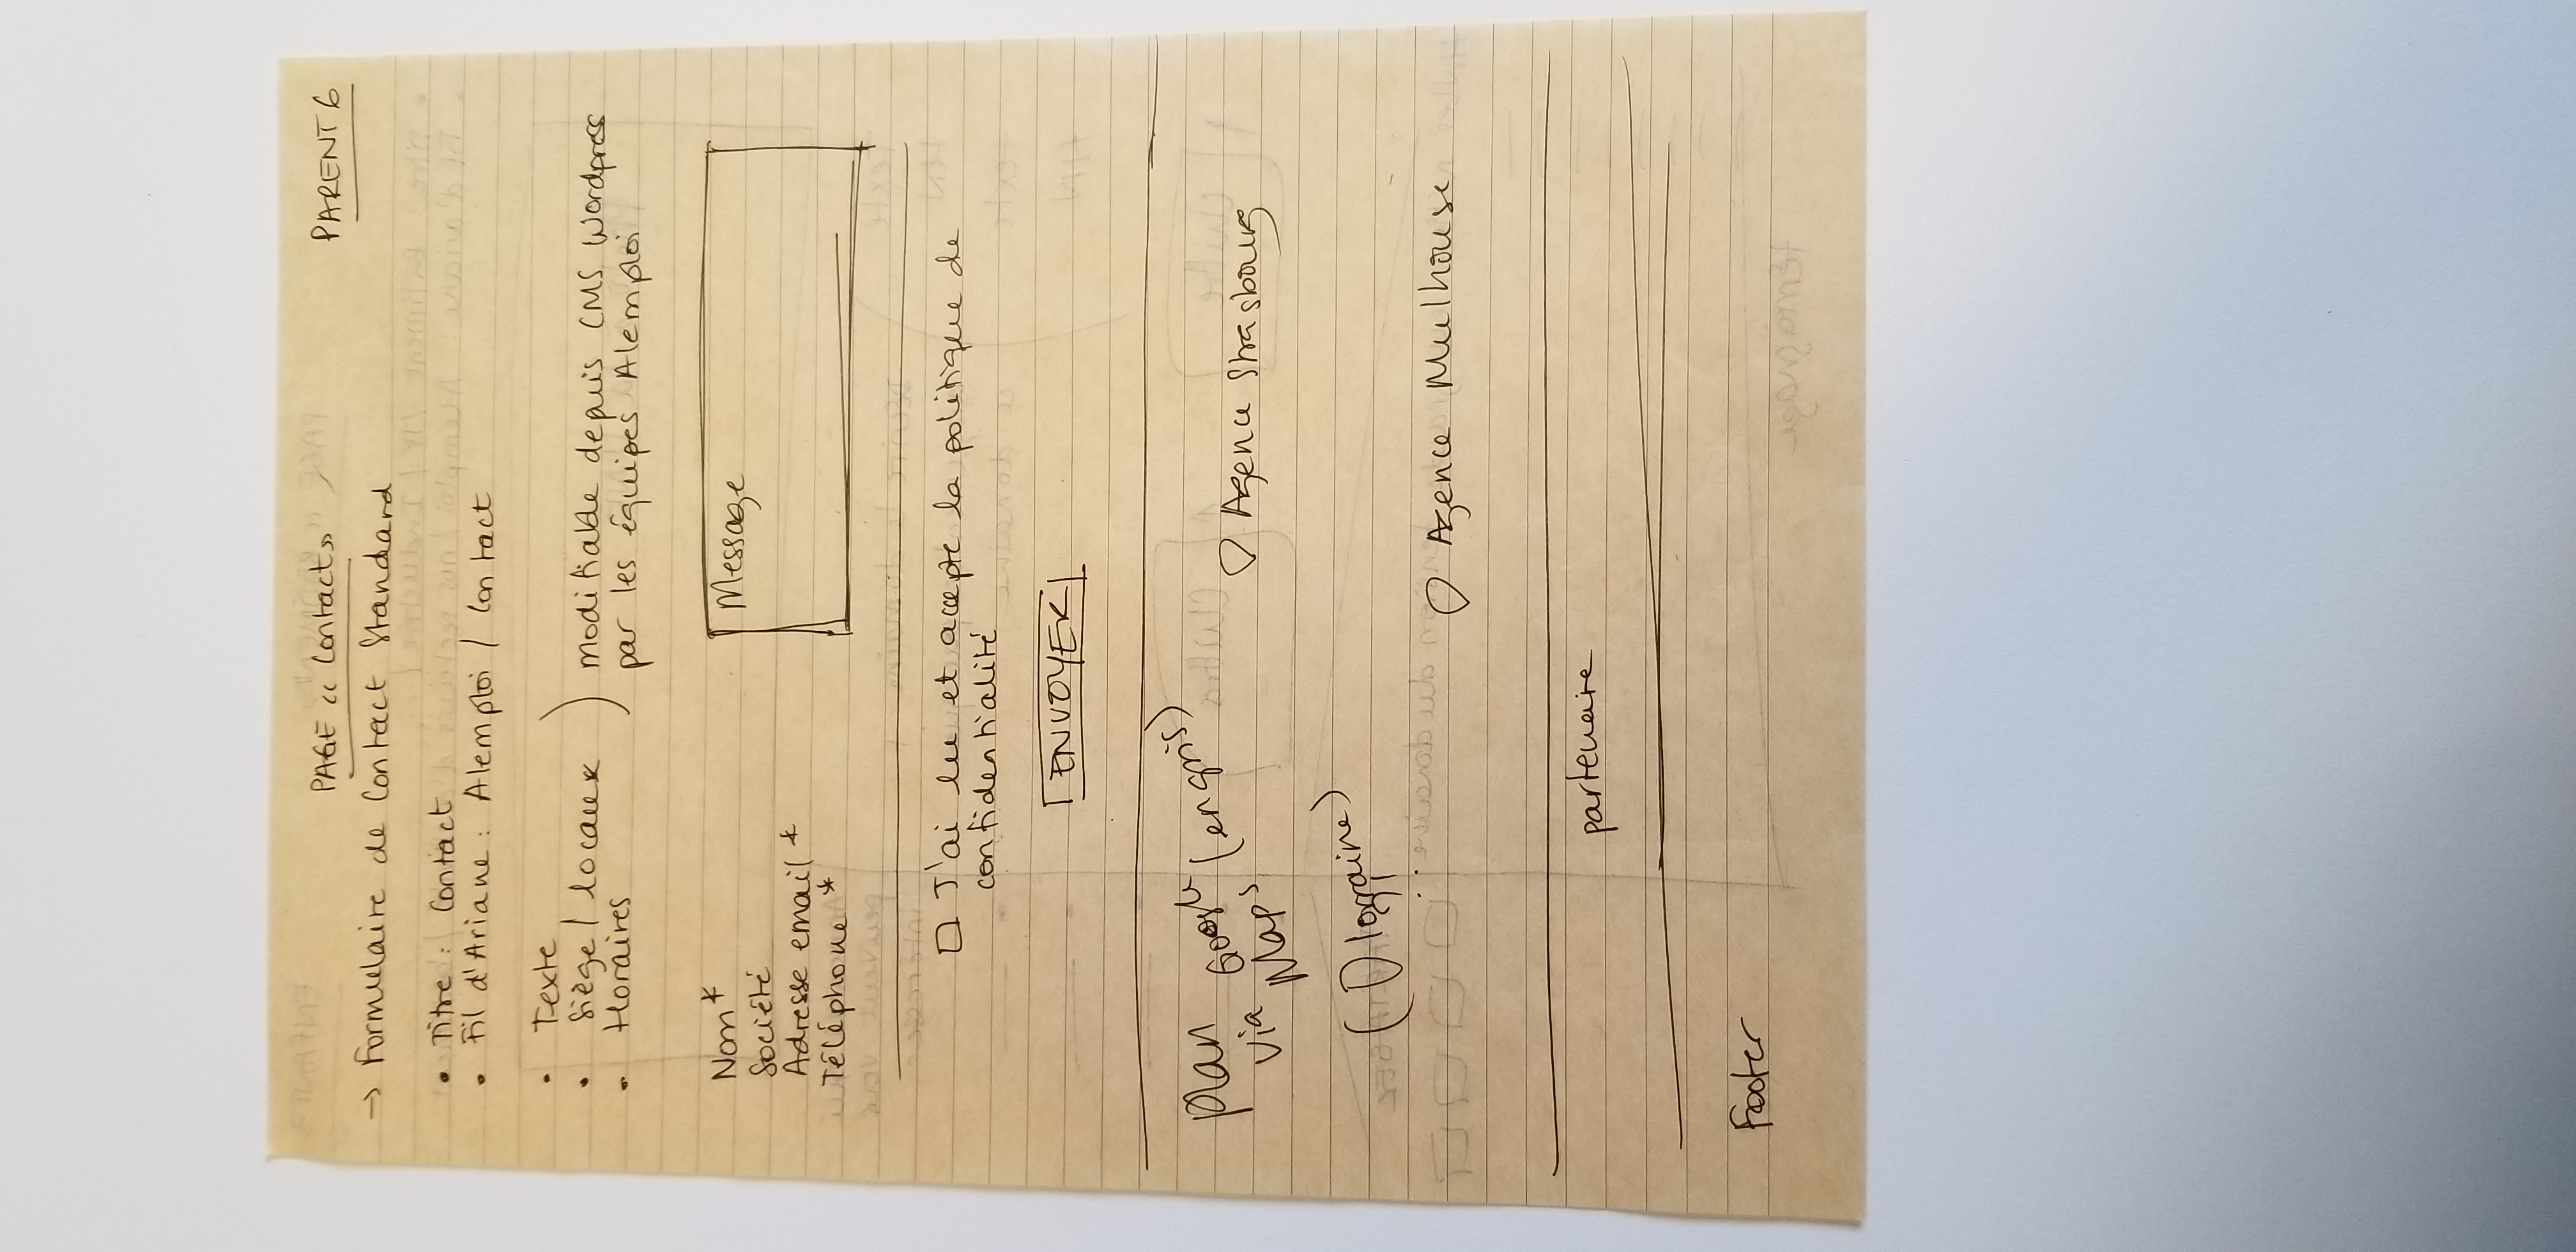 PARENT 6
PAGE "Contact"
→ Formulaire de Contact Standard
• Titre : Contact
• Fil d'Ariane : Alemploi / Contact
• Texte
• Siège / locaux ) modifiable depuis CMS Wordpress
• Horaires par les équipes Alemploi
Nom* Message
Société
Adresse email *
Téléphone *
□ J'ai lu et accepte la politique de
confidentialité
ENVOYER
plan Google (en gris)
via Map's
Agence Strasbourg
Agence Mulhouse
partenaire
Footer